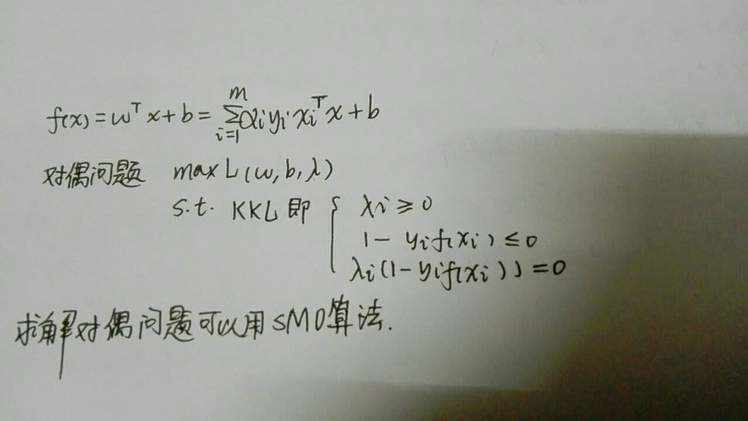 f(x) = ω^T x + b = Σ_{i=1}^{m} α_i y_i x_i^T x + b
对偶问题 max L(ω, b, λ)
s.t. KKL 即 { λ_i ≥ 0
1 - y_i f(x_i) ≤ 0
λ_i (1 - y_i f(x_i)) = 0
求解对偶问题可以用 SMO算法.